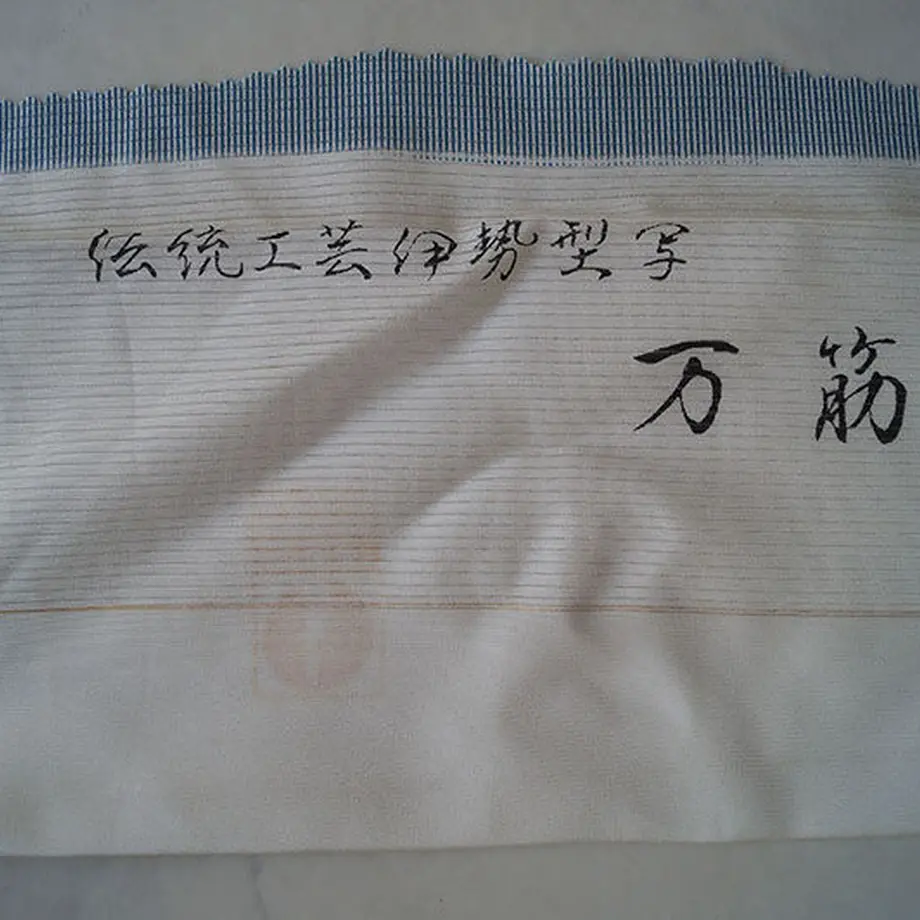 伝統工芸伊勢型写
万筋